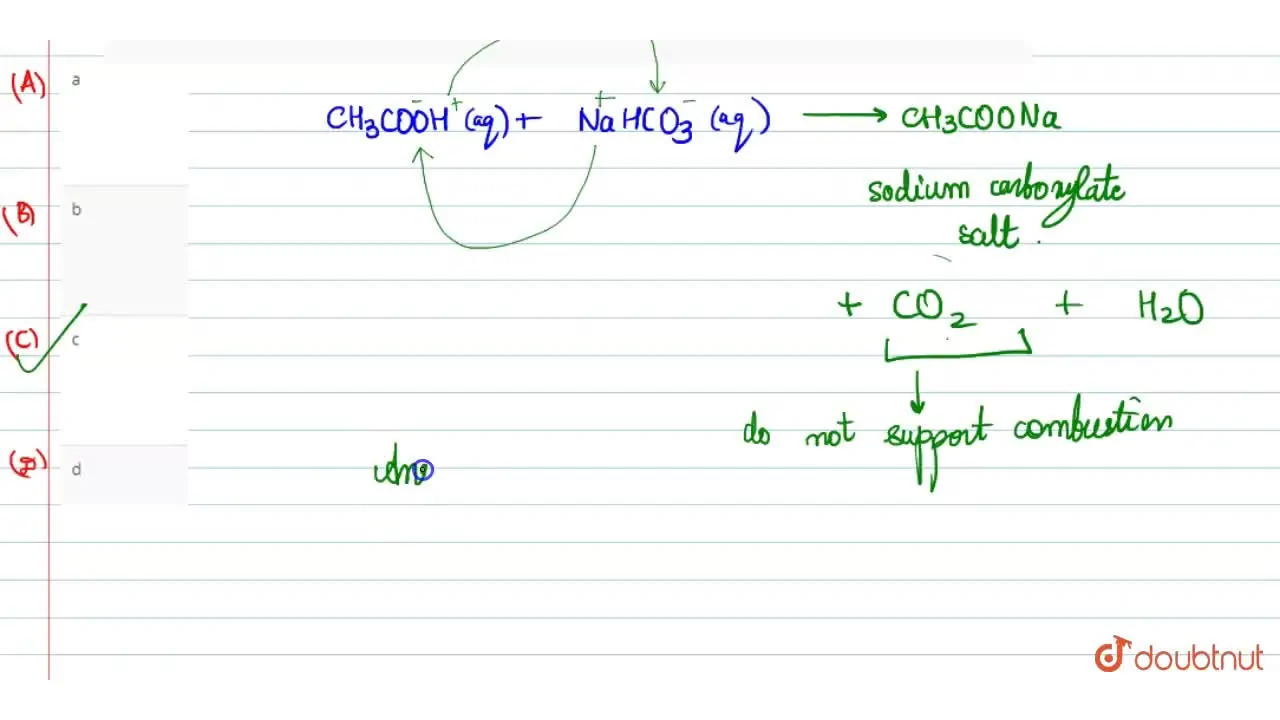 (A) a
CH₃COO⁻H⁺(aq) + Na⁺HCO₃⁻(aq) ⟶ CH₃COONa
sodium carboxylate
salt.
(B) b
+ CO₂ + H₂O
(C) c
do not support combustion
(D) d
An
doubtnut